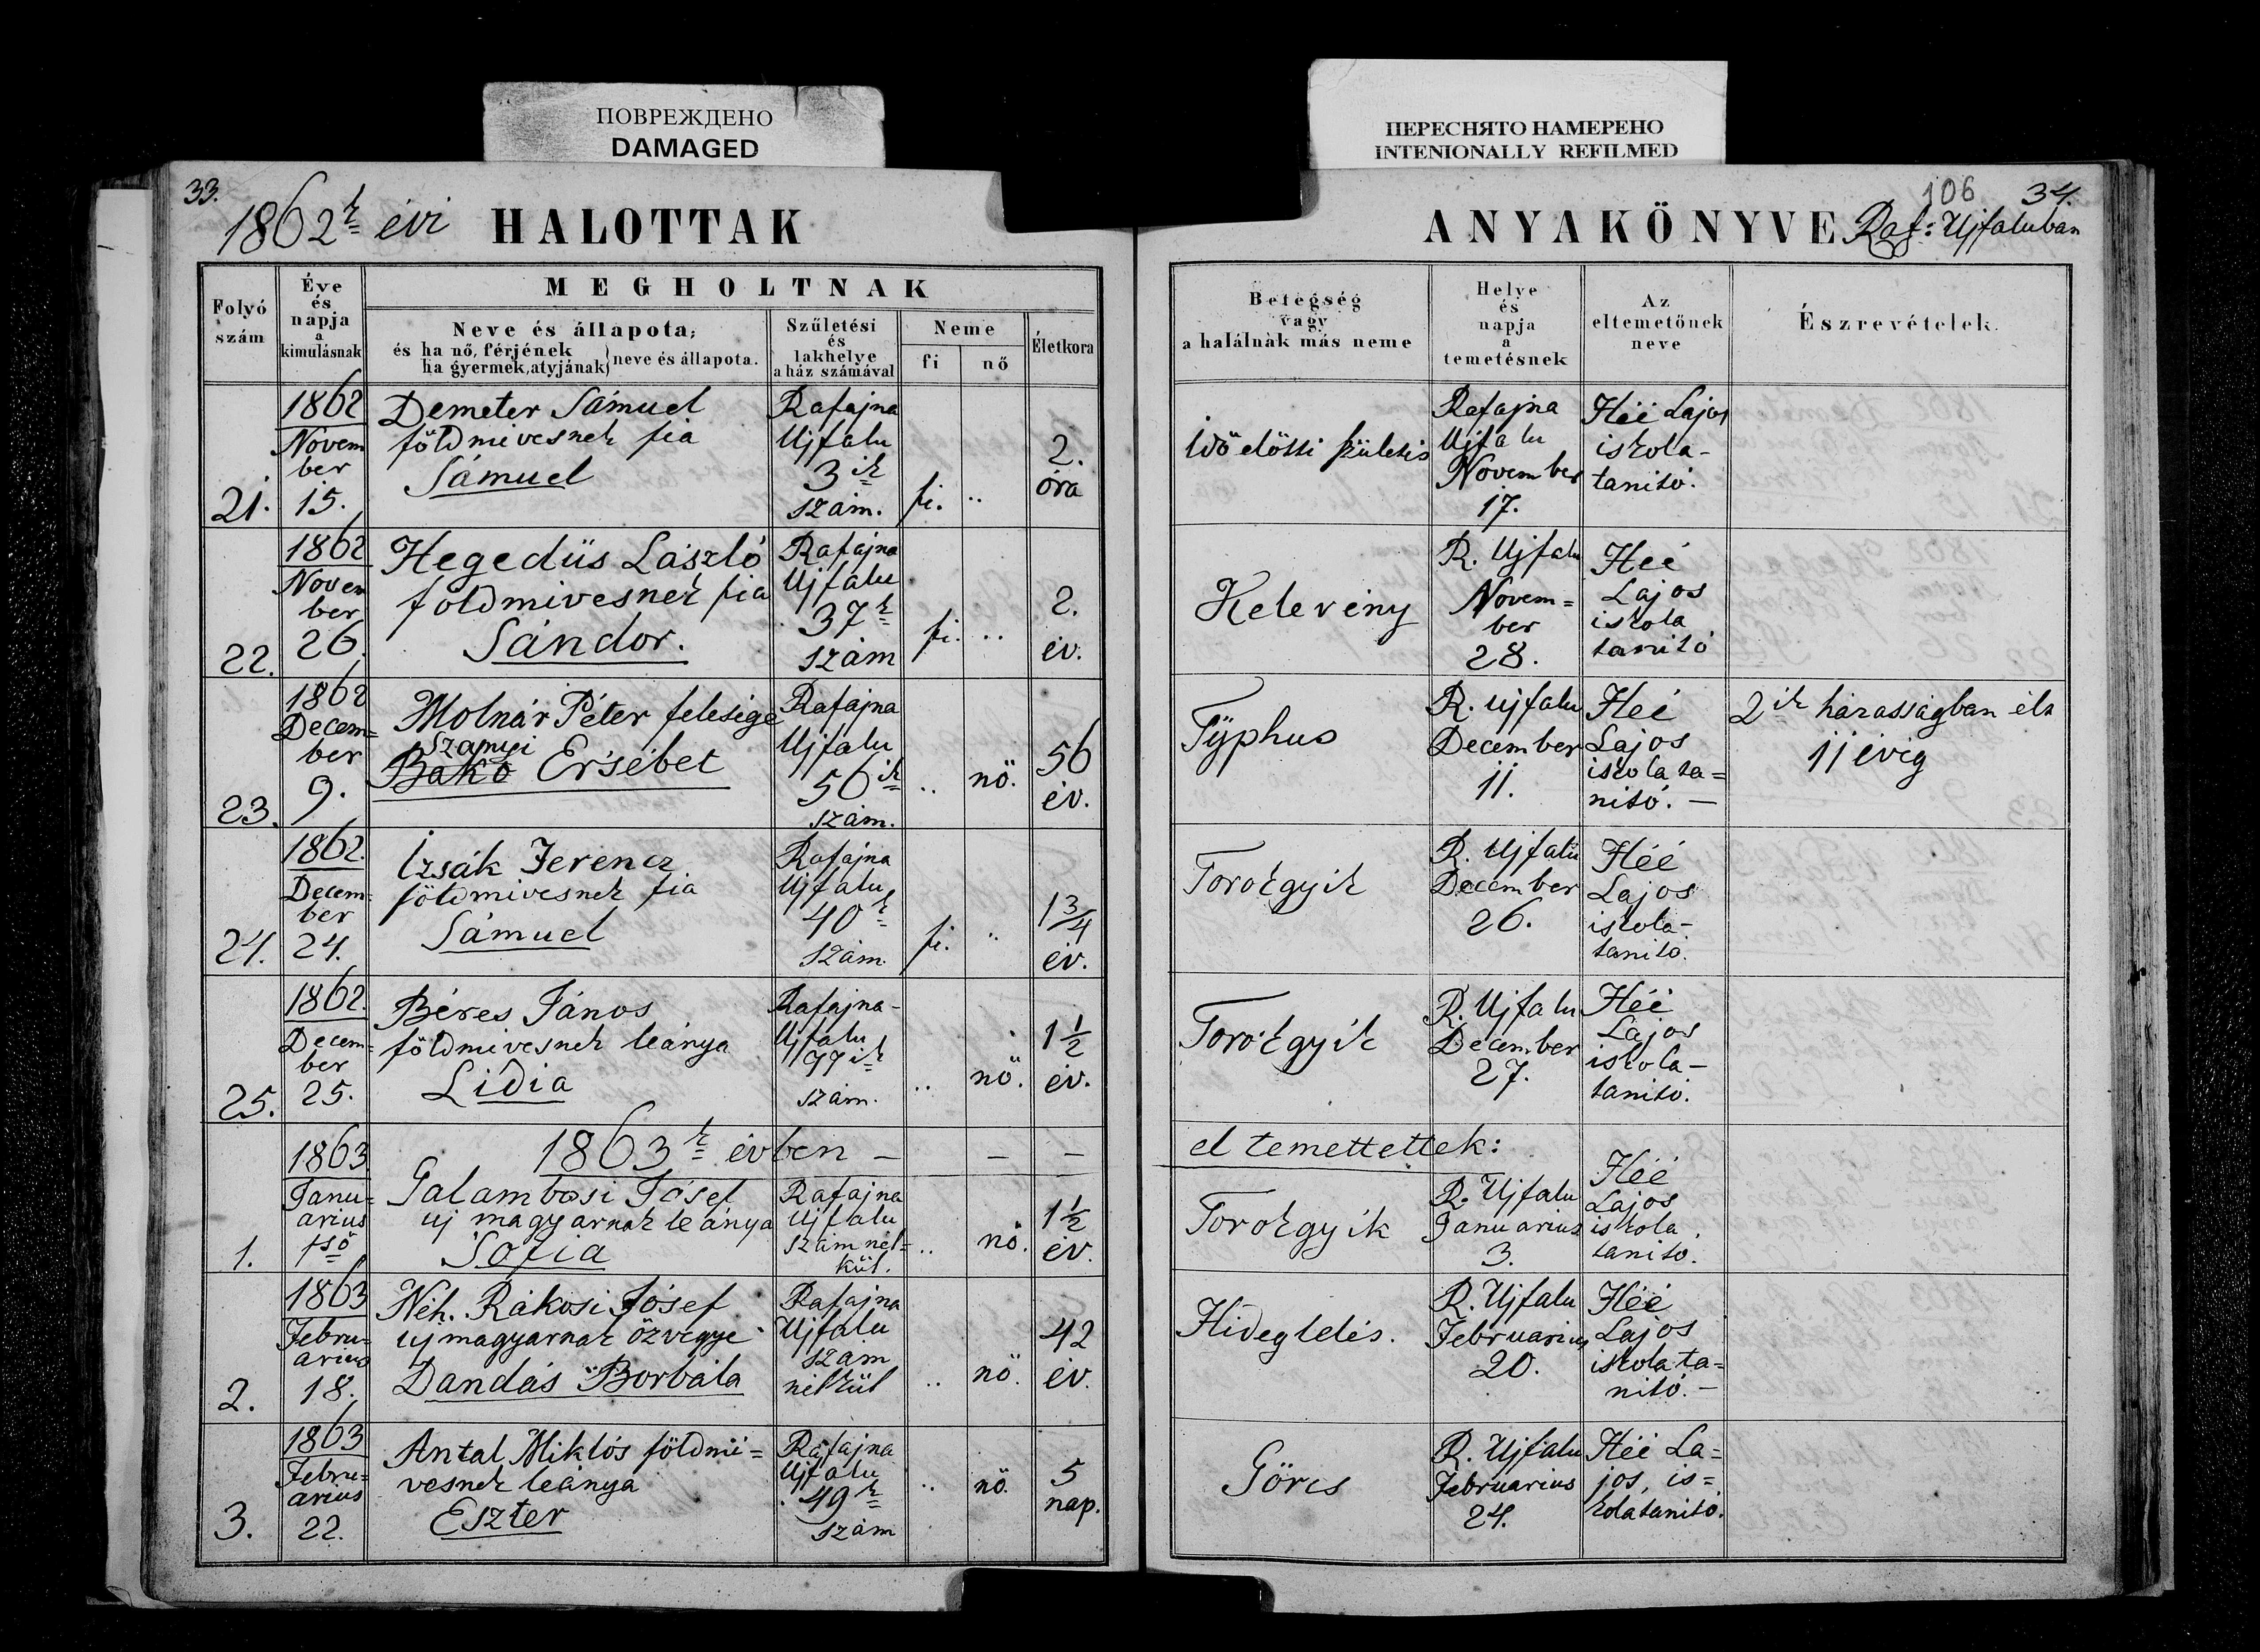 ПОВРЕЖДЕНО
DAMAGED
ПЕРЕСНЯТО НАМЕРЕНО
INTENIONALLY REFILMED
33.
1862k évi HALOTTAK
106 34.
ANYAKÖNYVE Raf: Ujfaluban
Folyó
szám
Éve
és
napja
a
kimulásnak
MEGHOLTNAK
Neve és állapota;
és ha nő, férjének
ha gyermek, atyjának } neve és állapota.
Születési
és
lakhelye
a ház számával
Neme
fi nő
Életkora
Betegség
vagy
a halálnak más neme
Helye
és
napja
a
temetésnek
Az
eltemetőnek
neve
Észrevételek.
21.
1862
Novem
ber
15.
Demeter Sámuel
földmivesnek fia
Sámuel
Rafajna
Ujfalu
3ik
szám.
fi. ..
2.
óra
Idő előtti születés
Rafajna
Ujfalu
November
17.
Héé Lajos
iskola-
tanitó.
22.
1862
Novem
ber
26.
Hegedüs László
földmivesnek fia
Sándor.
Rafajna
Ujfalu
37k
szám
fi. ..
2.
év.
Kelevény
R. Ujfalu
Novem=
ber
28.
Héé
Lajos
iskola
tanitó
23.
1862
Decem=
ber
9.
Molnár Péter felesége
Szanyi
Bakó Ersébet
Rafajna
Ujfalu
56ik
szám.
.. nő.
56
év.
Typhus
R. Ujfalu
December
11.
Héé
Lajos
iskola ta=
nitó. —
2ik házasságban élt
11 évig
24.
1862.
Decem=
ber
24.
Izsák Ferencz
földmivesnek fia
Sámuel
Rafajna
Ujfalu
40k
szám.
fi. ..
1 3/4
év.
Torokgyik
R. Ujfalu
December
26.
Héé
Lajos
iskola-
tanitó.
25.
1862.
Decem=
ber
25.
Béres János
földmivesnek leánya
Lidia
Rafajna-
Ujfalu
77ik
szám.
.. nő.
1 1/2
év.
Torokgyik
R. Ujfalu
December
27.
Héé
Lajos
iskola-
tanitó.
1863k évben — — —
el temettettek:
1.
1863
Janu=
arius
1ső
Galambosi Jósef
uj magyarnak leánya
Sofia
Rafajna
Ujfalu
szám nél=
kül.
.. nő.
1 1/2
év.
Torokgyik
R. Ujfalu
Januarius
3.
Héé
Lajos
iskola
tanitó.
2.
1863
Febru=
arius
18.
Néh. Rákosi Jósef
uj magyarnak özvegye
Dandás Borbála
Rafajna
Ujfalu
szám
nélkül
.. nő.
42
év.
Hideglelés.
R. Ujfalu
Februarius
20.
Héé
Lajos
iskola ta=
nitó. —
3.
1863
Febru=
arius
22.
Antal Miklós földmi=
vesnek leánya
Eszter
Rafajna
Ujfalu
49k
szám
.. nő.
5
nap.
Görcs
R. Ujfalu
Februarius
24.
Héé La=
jos, is=
kolatanitó.